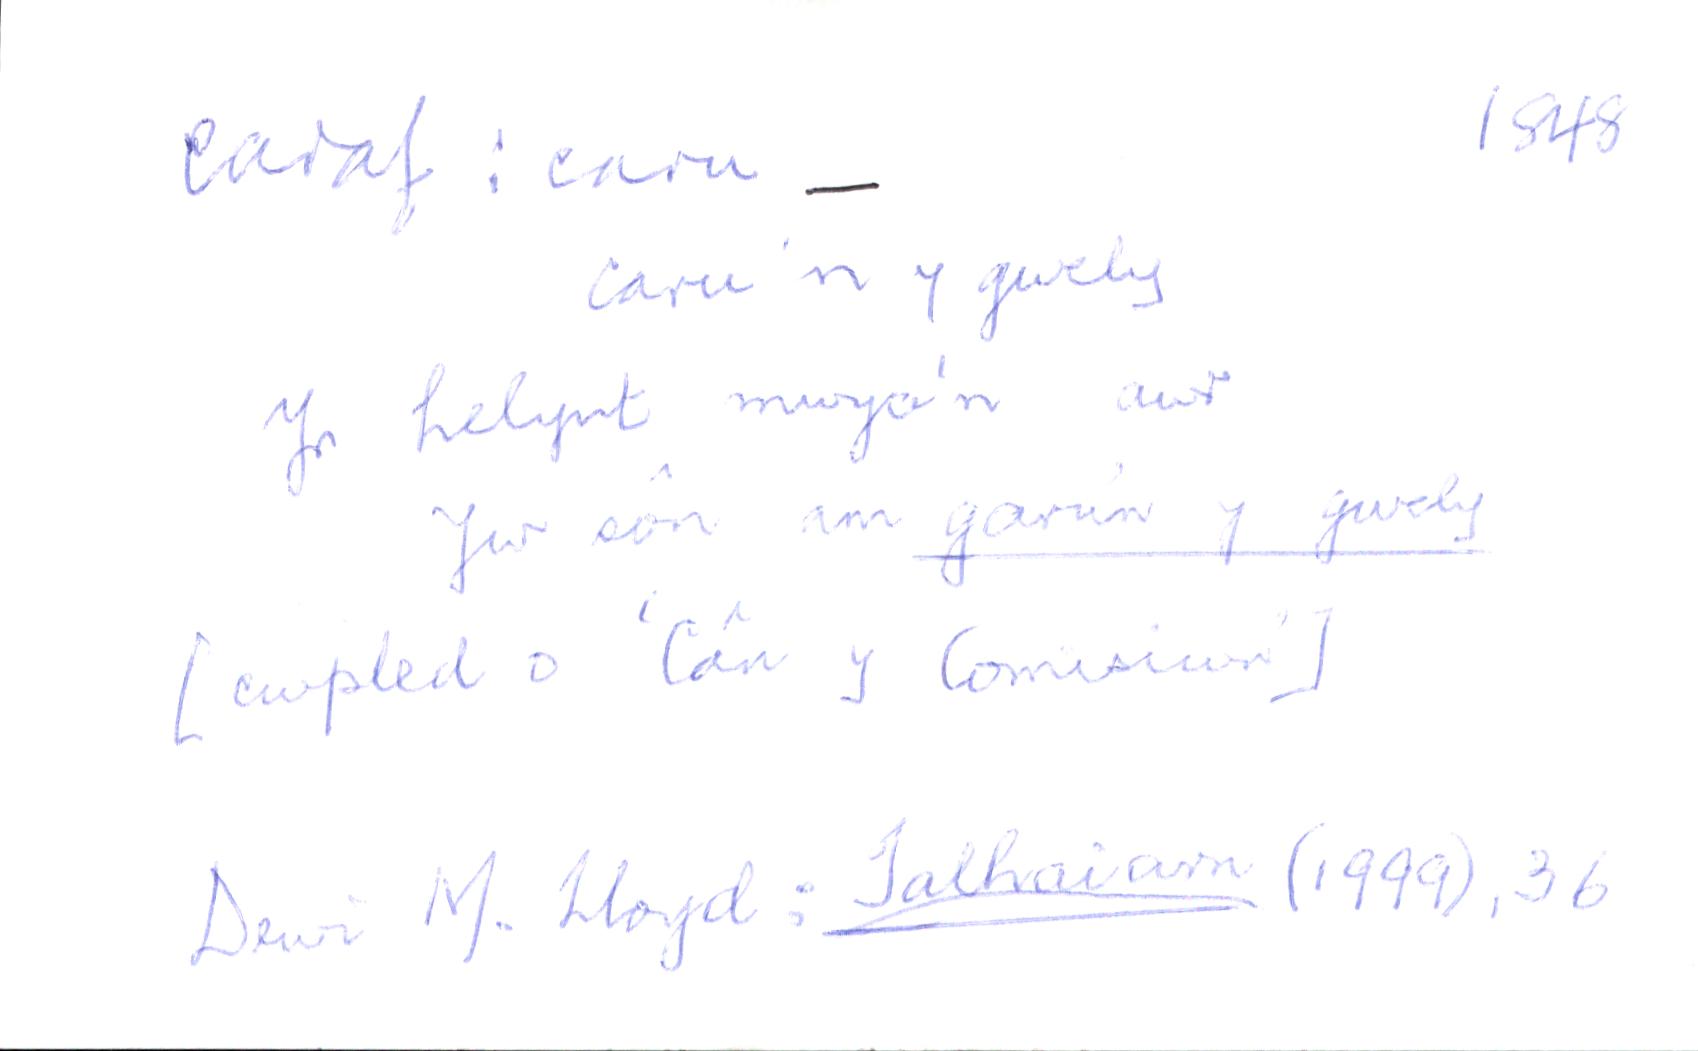 caraf : caru — 1848
caru'n y gwely
Yr helynt mwya'n awr
Yw sôn am garu'n y gwely
[cwpled o 'Cân y Comisiwn']
Dewi M. Lloyd : Talhaiarn (1999), 36